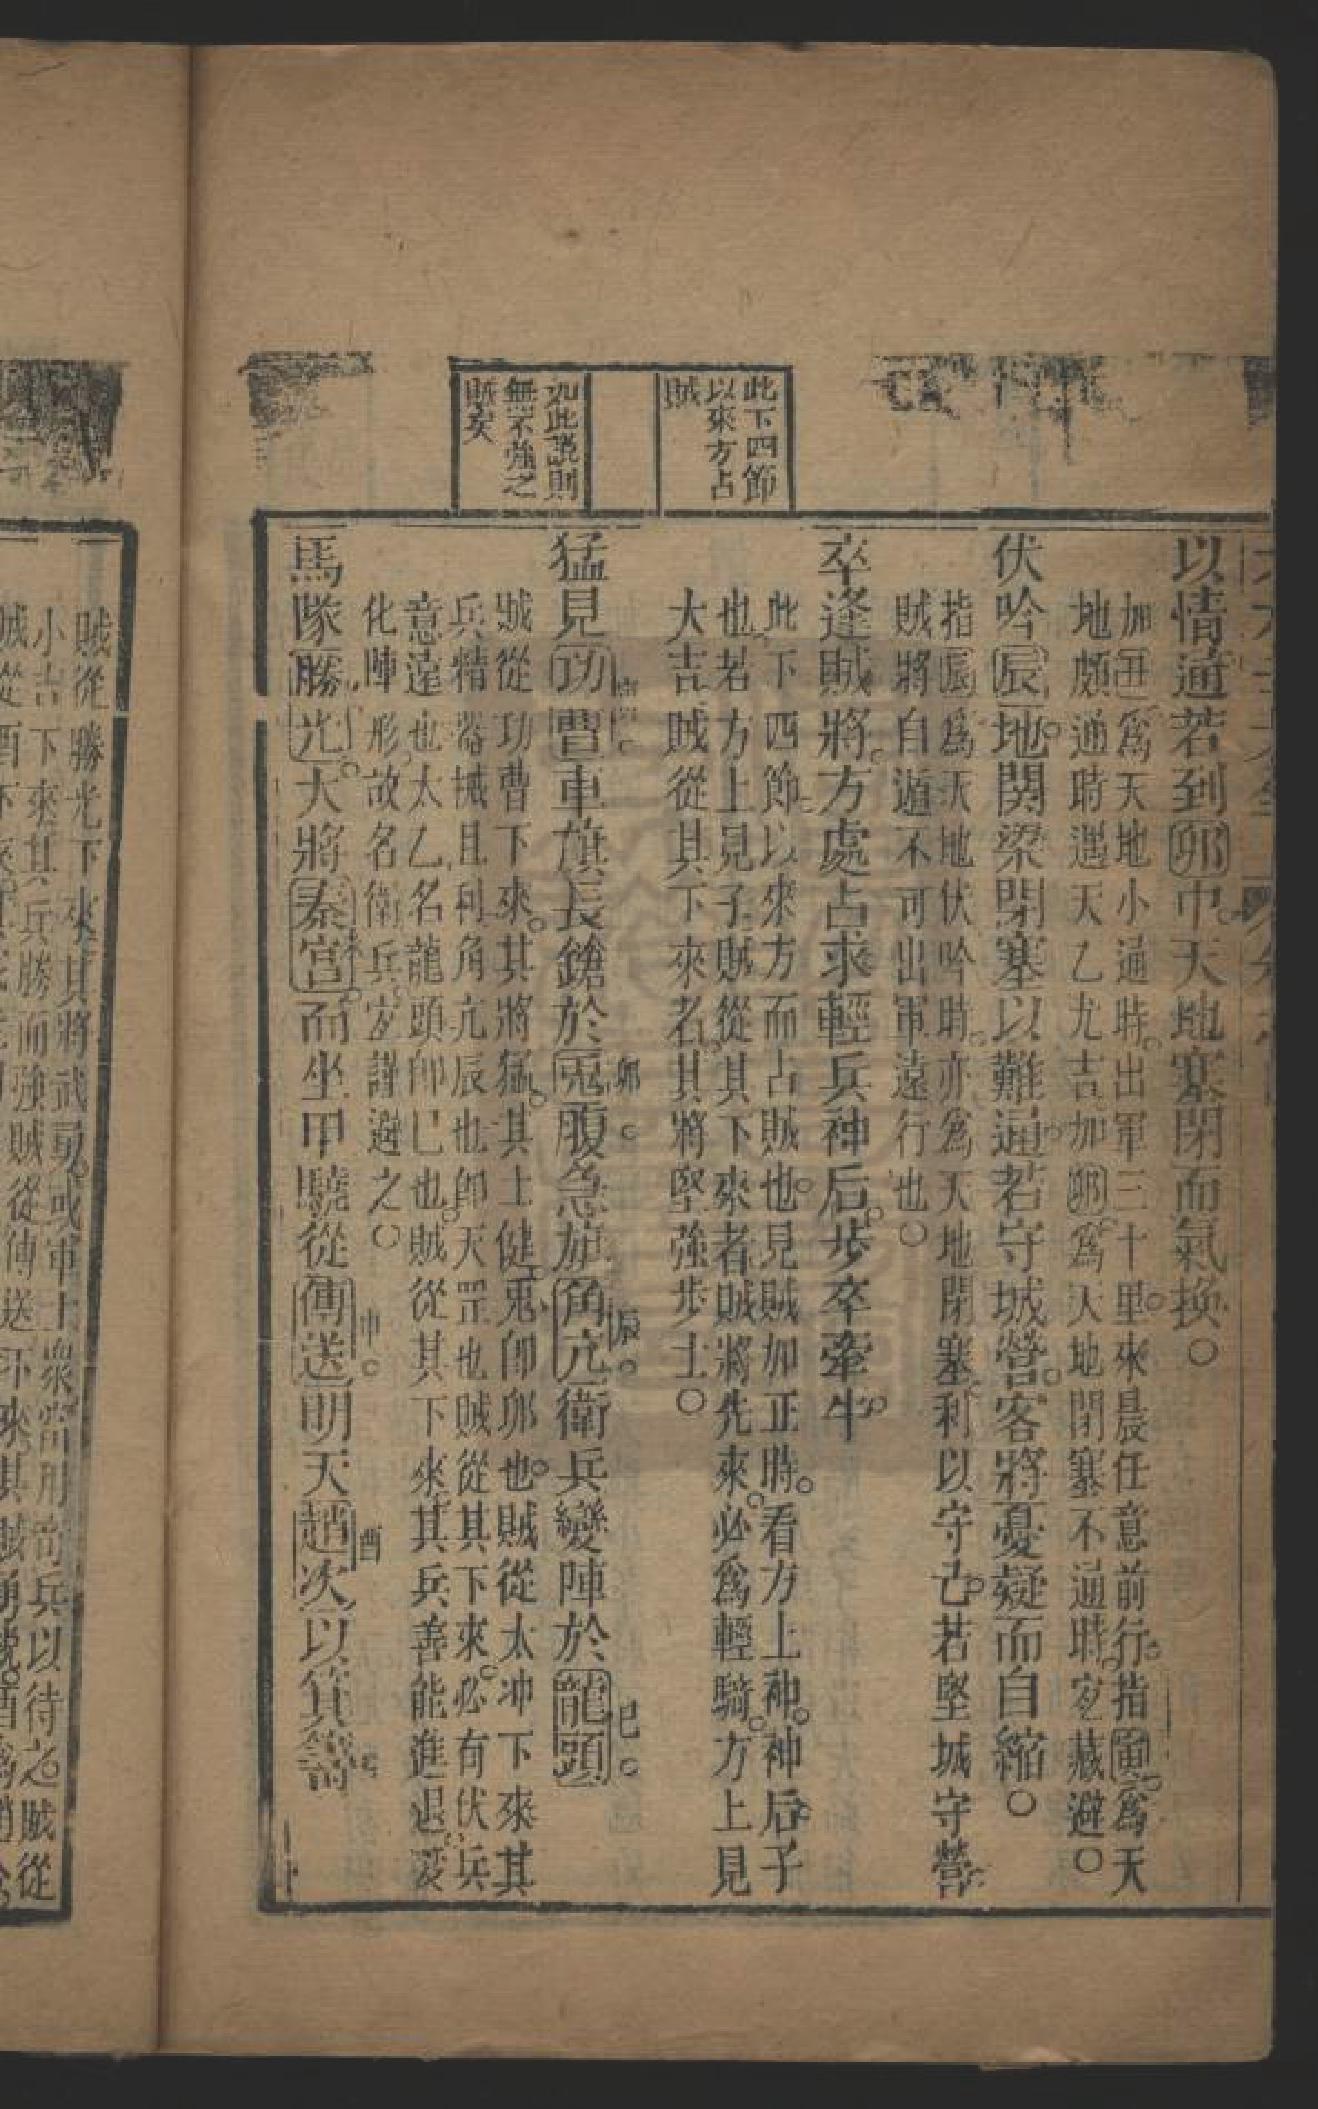 以情通若到卯中天地塞閉而氣換○
加丑為天地小通時出軍三十里來晨任意前行指寅為天
地頗通時遇天乙尤吉加卯為天地閉塞不通時宜藏避○
伏吟辰地関梁閉塞以難通若守城營客將憂疑而自縮○
指辰為天地伏吟時亦為天地閉塞利以守己若堅城守營
賊將自遁不可出軍遠行也○
卒逢賊將方處占求輕兵神后步卒牽牛
此下四節以來方而占賊也見賊加正時看方上神神后子
也若方上見子賊從其下來者賊將先來必為輕騎方上見
大吉賊從其下來者其將堅強步士○
猛見功曹車旗長鎗於兎腹急旋角亢衛兵變陣於龍頭
寅 卯 辰 巳
賊從功曹下來其將猛其士健兎即卯也賊從太冲下來其
兵精器械且利角亢辰也即天罡也賊從其下來必有伏兵
意遠也太乙名龍頭即巳也賊從其下來其兵善能進退变
化陣形故名衛兵宜謹避之○
馬隊勝光大將秦宮而坐甲驍從傳送明天趙次以箕籌
午 未 申 酉
此下四節
以來方占
賊
如此說則
無不強之
賊矣
賊從勝光下來其將武勇或軍士衆當用奇兵以待之賊從
小吉下來其兵勝而強賊從傳送下來其賊勇銳酉為趙分